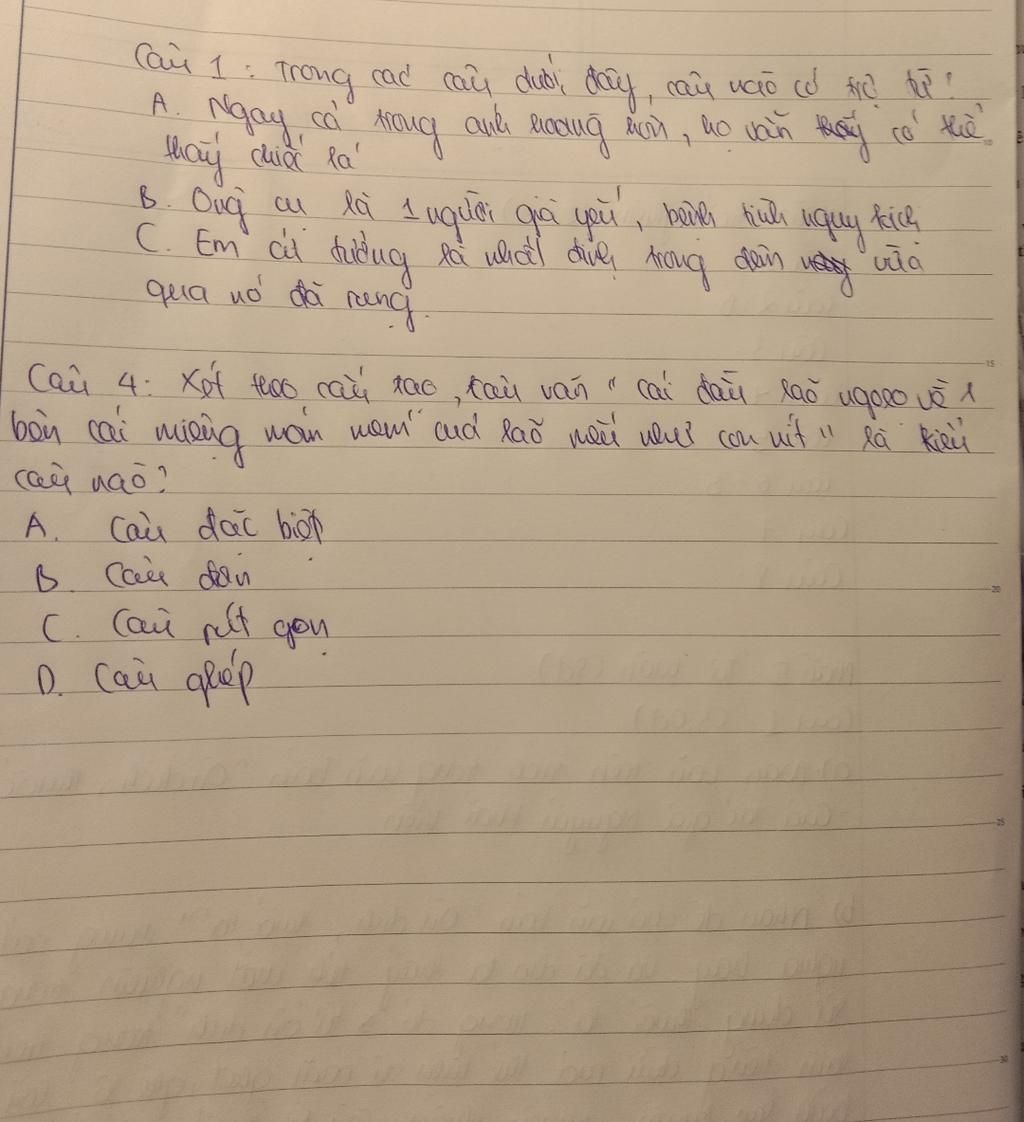 Câu 1: Trong các câu dưới đây, câu nào có trợ từ?
A. Ngay cả trong ánh hoàng hôn, họ vẫn thấy có thể
thấy chiếc lá
B. Ông cụ là 1 người già yếu, bệnh tình nguy kịch
C. Em cứ tưởng là nhất định trong đêm vừa
qua nó đã rụng.
Câu 4: Xét theo cấu tạo, câu văn "Cái đầu lão ngoẹo về 1
bên cái miệng móm mém của lão mếu như con nít" là kiểu
câu nào?
A. Câu đặc biệt
B. Câu đơn
C. Câu rút gọn
D. Câu ghép